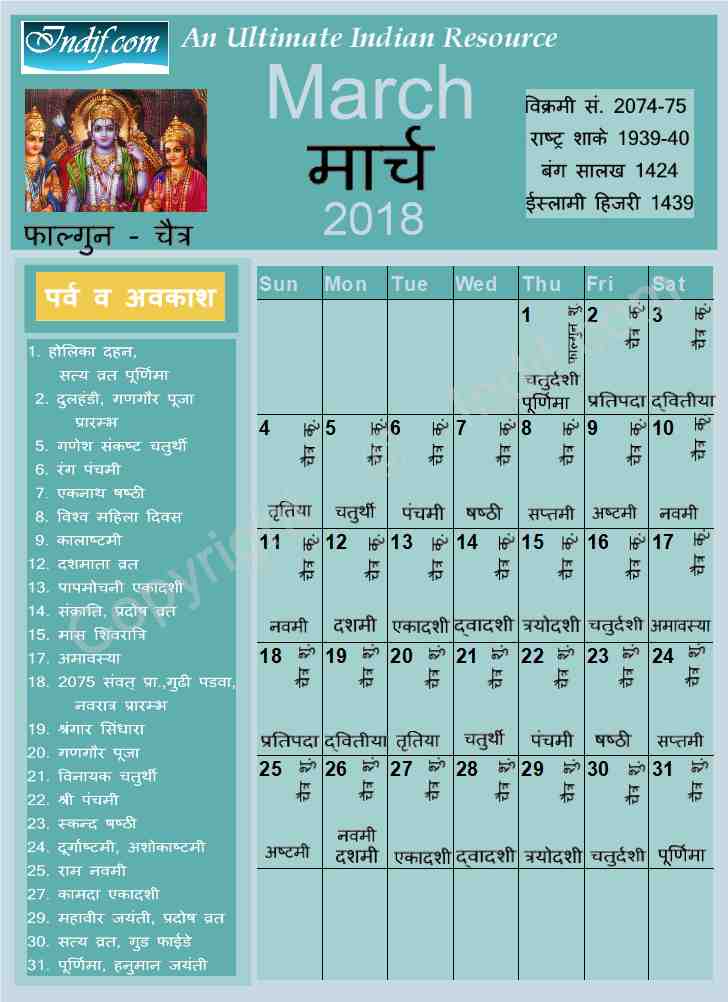 Indif.com An Ultimate Indian Resource
March
मार्च
2018
विक्रमी सं. 2074-75
राष्ट्र शाके 1939-40
बंग सालख 1424
ईस्लामी हिजरी 1439
फाल्गुन - चैत्र
पर्व व अवकाश
1. होलिका दहन,
सत्य व्रत पूर्णिमा
2. दुलहंडी, गणगौर पूजा
प्रारम्भ
5. गणेश संकष्ट चतुर्थी
6. रंग पंचमी
7. एकनाथ षष्ठी
8. विश्व महिला दिवस
9. कालाष्टमी
12. दशमाता व्रत
13. पापमोचनी एकादशी
14. संक्राति, प्रदोष व्रत
15. मास शिवरात्रि
17. अमावस्या
18. 2075 संवत् प्रा.,गुढी पडवा,
नवरात्र प्रारम्भ
19. श्रंगार सिंधारा
20. गणगौर पूजा
21. विनायक चतुर्थी
22. श्री पंचमी
23. स्कन्द षष्ठी
24. दूर्गाष्टमी, अशोकाष्टमी
25. राम नवमी
27. कामदा एकादशी
29. महावीर जयंती, प्रदोष व्रत
30. सत्य व्रत, गुड फाईडे
31. पूर्णिमा, हनुमान जयंती
Sun Mon Tue Wed Thu Fri Sat
1 फाल्गुन शु. 2 चैत्र कृ. 3 चैत्र कृ.
चतुर्दशी
पूर्णिमा प्रतिपदा द्वितीया
4 चैत्र कृ. 5 चैत्र कृ. 6 चैत्र कृ. 7 चैत्र कृ. 8 चैत्र कृ. 9 चैत्र कृ. 10 चैत्र कृ.
तृतिया चतुर्थी पंचमी षष्ठी सप्तमी अष्टमी नवमी
11 चैत्र कृ. 12 चैत्र कृ. 13 चैत्र कृ. 14 चैत्र कृ. 15 चैत्र कृ. 16 चैत्र कृ. 17 चैत्र कृ.
नवमी दशमी एकादशी द्वादशी त्रयोदशी चतुर्दशी अमावस्या
18 चैत्र शु. 19 चैत्र शु. 20 चैत्र शु. 21 चैत्र शु. 22 चैत्र शु. 23 चैत्र शु. 24 चैत्र शु.
प्रतिपदा द्वितीया तृतिया चतुर्थी पंचमी षष्ठी सप्तमी
25 चैत्र शु. 26 चैत्र शु. 27 चैत्र शु. 28 चैत्र शु. 29 चैत्र शु. 30 चैत्र शु. 31 चैत्र शु.
नवमी
अष्टमी दशमी एकादशी द्वादशी त्रयोदशी चतुर्दशी पूर्णिमा